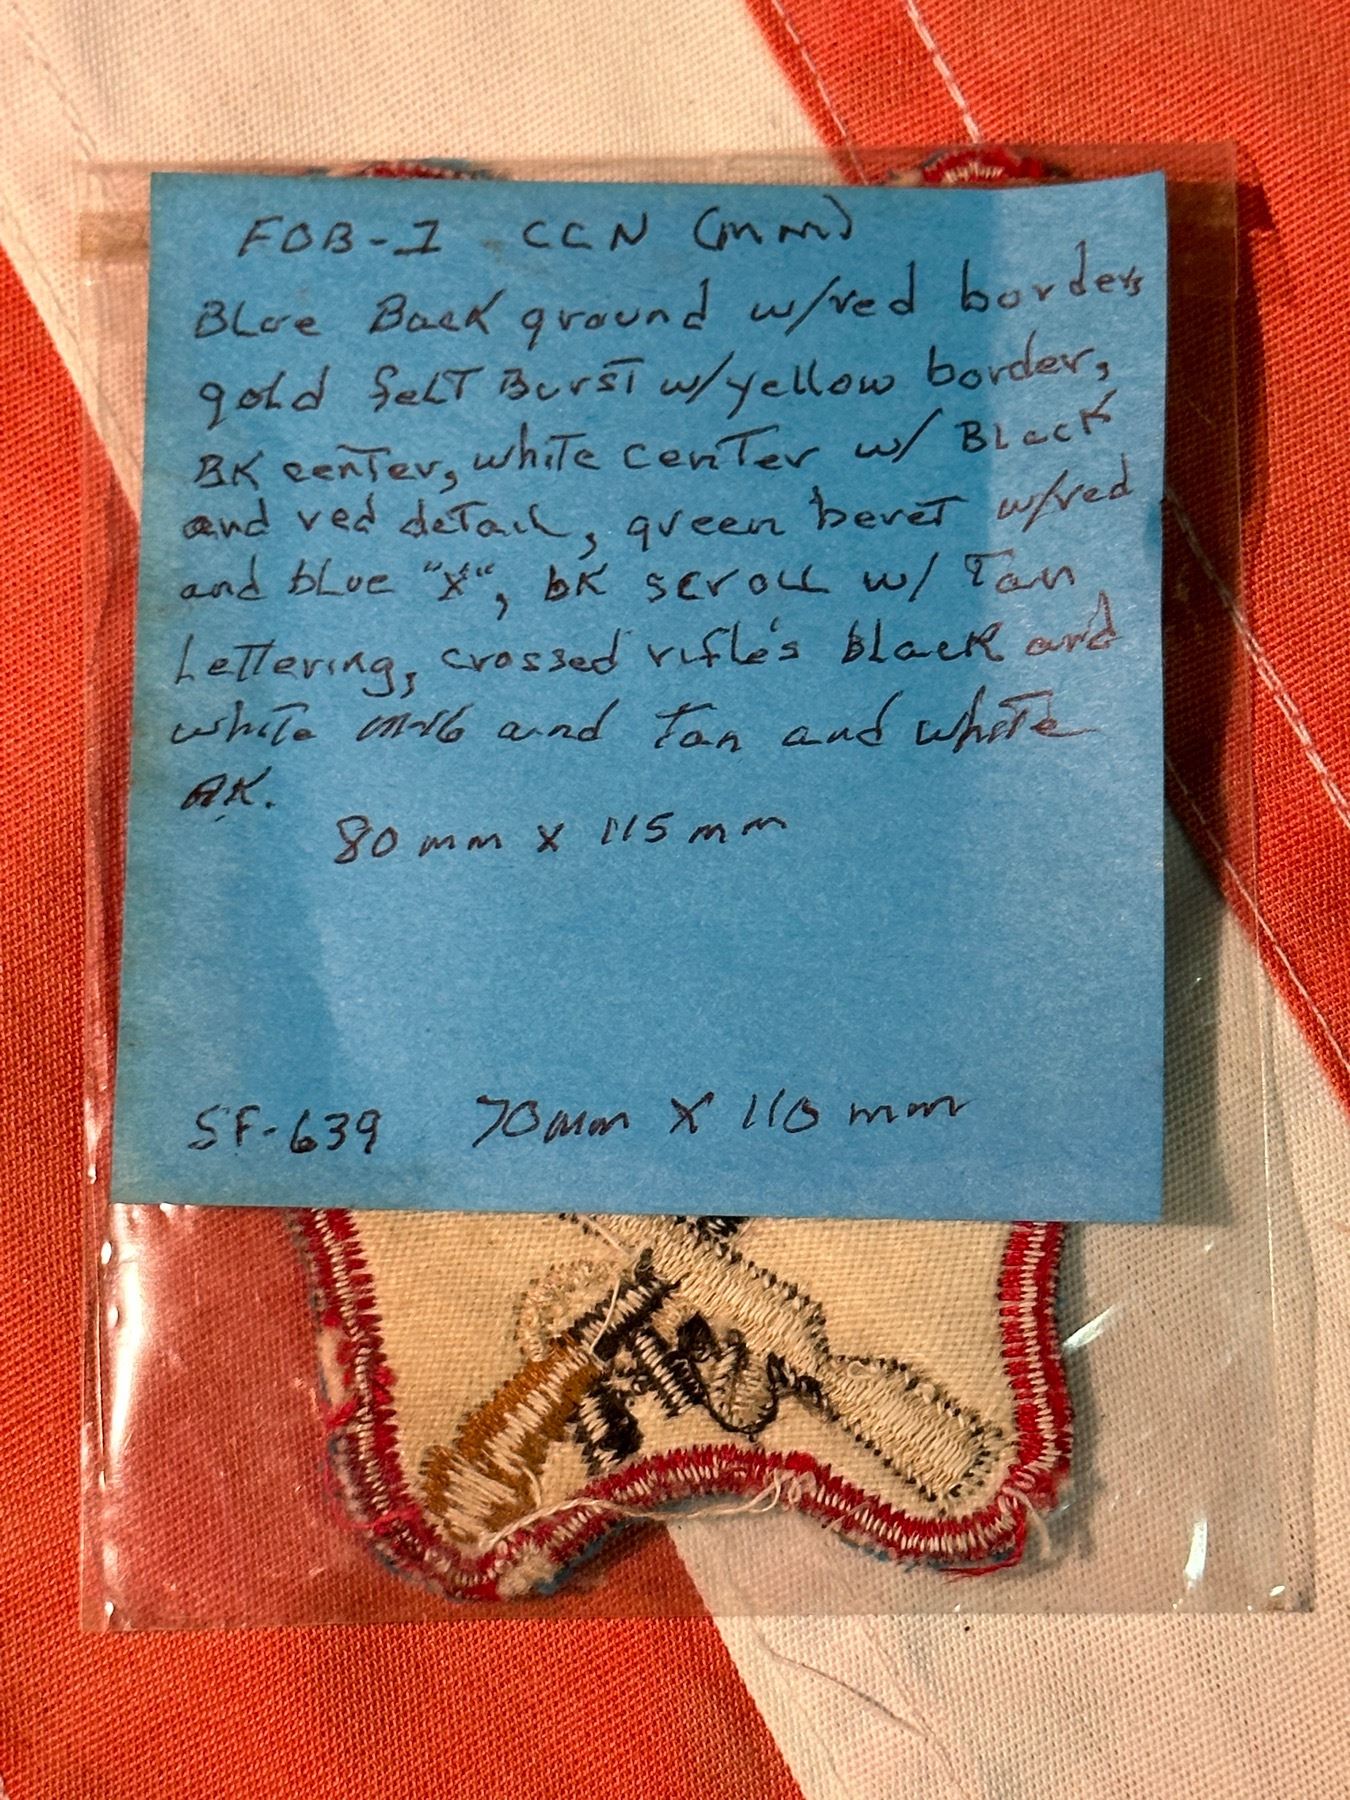 FOB-1 CCN (mm)
Blue Back ground w/red borders
gold felt Burst w/yellow border,
BK center, white center w/ Black
and red detail, green beret w/red
and blue "X", bK scroll w/ Tan
Lettering, crossed rifle's black and
white m-16 and tan and white
AK.
80mm x 115mm
SF-639 70mm X 110mm